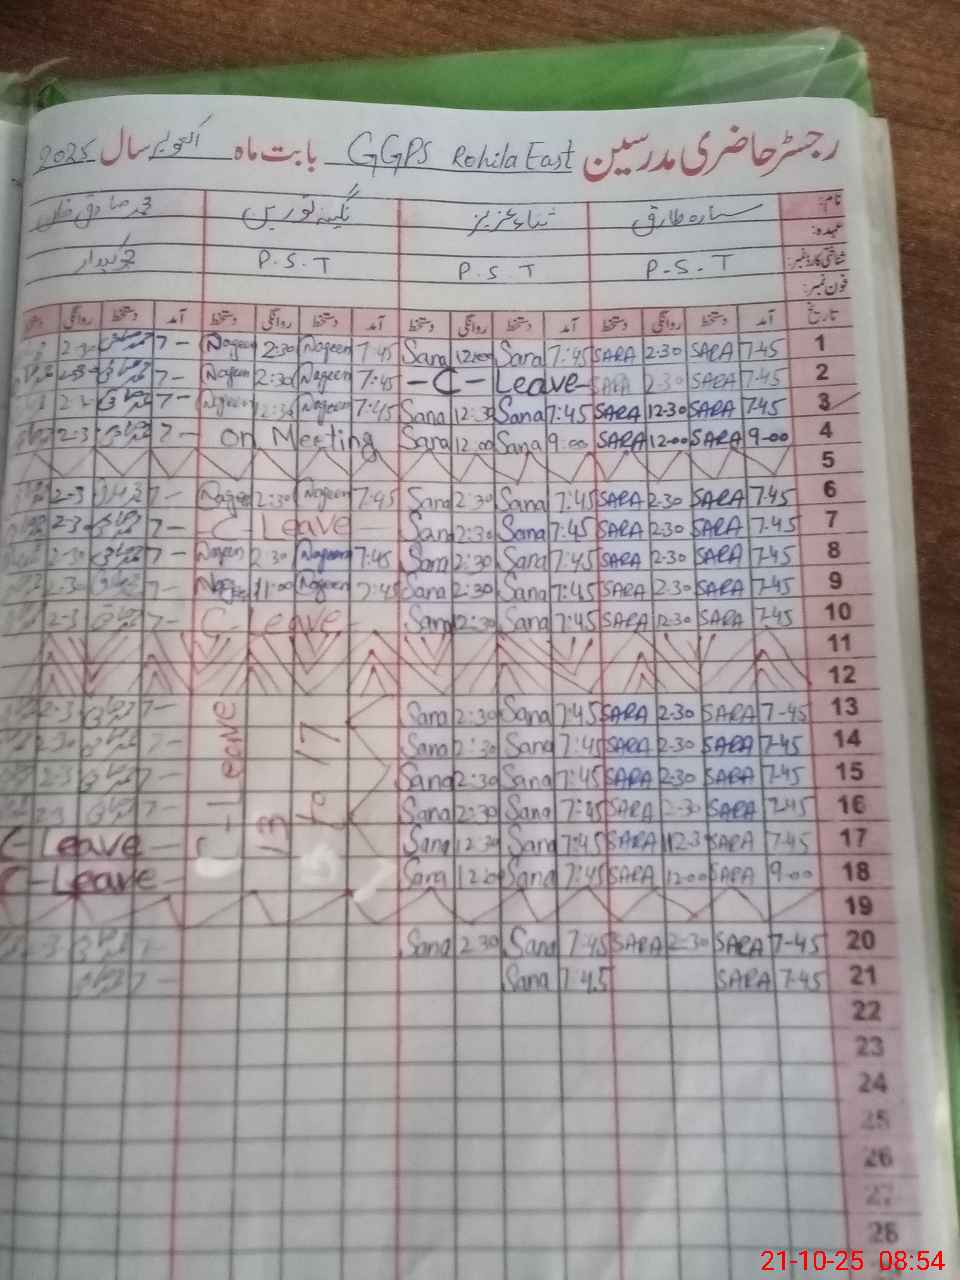 رجسٹر حاضری مدرسین GGPS Rohila East بابت ماہ اکتوبر سال 2025
نام: ستارہ طارق ثناء عزیز نگینہ نورین
عہدہ:
شناختی کارڈ نمبر: P.S.T P.S.T P.S.T چوکیدار
فون نمبر:
تاریخ آمد دستخط روانگی دستخط آمد دستخط روانگی دستخط آمد دستخط روانگی دستخط آمد دستخط روانگی
1 7-45 SARA 2-30 SARA 7:45 Sana 12:00 Sana 7:45 Nageen 2:30 Nageen 7-
2 7-45 SARA 2-30 SARA C-Leave 7:45 Nageen 2:30 Nageen 7-
3 7-45 SARA 12-30 SARA 7:45 Sana 12:30 Sana 7:45 Nageen 12:30 Nageen 7-
4 9-00 SARA 12-00 SARA 9:00 Sana 12:00 Sana On Meeting 7-
5
6 7-45 SARA 2-30 SARA 7:45 Sana 2:30 Sana 7:45 Nageen 2:30 Nageen 7-
7 7-45 SARA 2-30 SARA 7:45 Sana 2:30 Sana C Leave 7-
8 7-45 SARA 2-30 SARA 7:45 Sana 2:30 Sana 7:45 Nageen 2:30 Nageen 7-
9 7-45 SARA 2-30 SARA 7:45 Sana 2:30 Sana 7:45 Nageen 11:00 Nageen 7-
10 7-45 SARA 12-30 SARA 7:45 Sana 12:30 Sana C-Leave 7-
11
12
13 7-45 SARA 2-30 SARA 7:45 Sana 2:30 Sana C-Leave 13 to 17 7-
14 7-45 SARA 2-30 SARA 7:45 Sana 2:30 Sana 7-
15 7-45 SARA 2-30 SARA 7:45 Sana 2:30 Sana 7-
16 7-45 SARA 2-30 SARA 7:45 Sana 2:30 Sana 7-
17 7-45 SARA 12-3 SARA 7:45 Sana 12:30 Sana C-Leave
18 9-00 SARA 12-00 SARA 7:45 Sana 12:00 Sana C-Leave
19
20 7-45 SARA 2-30 SARA 7:45 Sana 2:30 Sana 7-
21 7-45 SARA 7:45 Sana 7-
22
23
24
25
26
27
28
21-10-25 08:54